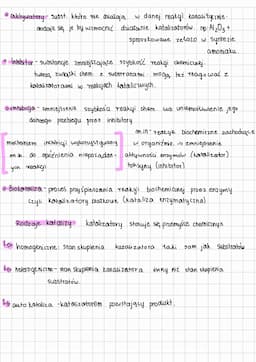 aktywatory - subst. które nie działają w danej reakcji katalitycznie
dodaje się je by wzmocnić działanie katalizatorów np. Al₂O₃ +
sproszkowane żelazo w syntezie
amoniaku.
inhibitor - substancje zmniejszające szybkość reakcji chemicznej
tworzą związki chem. z substratami mogą też reagować z
katalizatorami w reakcjach katalicznych.
inhibicja - zmniejszenie szybkości reakcji chem. lub uniemożliwienie jego
dalszego przebiegu przez inhibitory
mechanizm inhibicji wykorzystywany
m.in. do opóźnienia niepożądanych
reakcji
m.in - reakcje biochemiczne zachodzące
w organizmie → zmniejszenie
aktywności enzymów (katalizator)
toksyny (inhibitor)
Biokataliza - proces przyspieszania reakcji biochemicznej przez enzymy
czyli katalizatory białkowe (kataliza enzymatyczna)
Rodzaje katalizy: katalizatory stosuje się przemyśle chemicznym
homogeniczne: stan skupienia katalizatora taki sam jak substratów
heterogeniczne - stan skupienia katalizatora inny niż stan skupienia
substratów.
auto kataliza - katalizatorem powstający produkt.